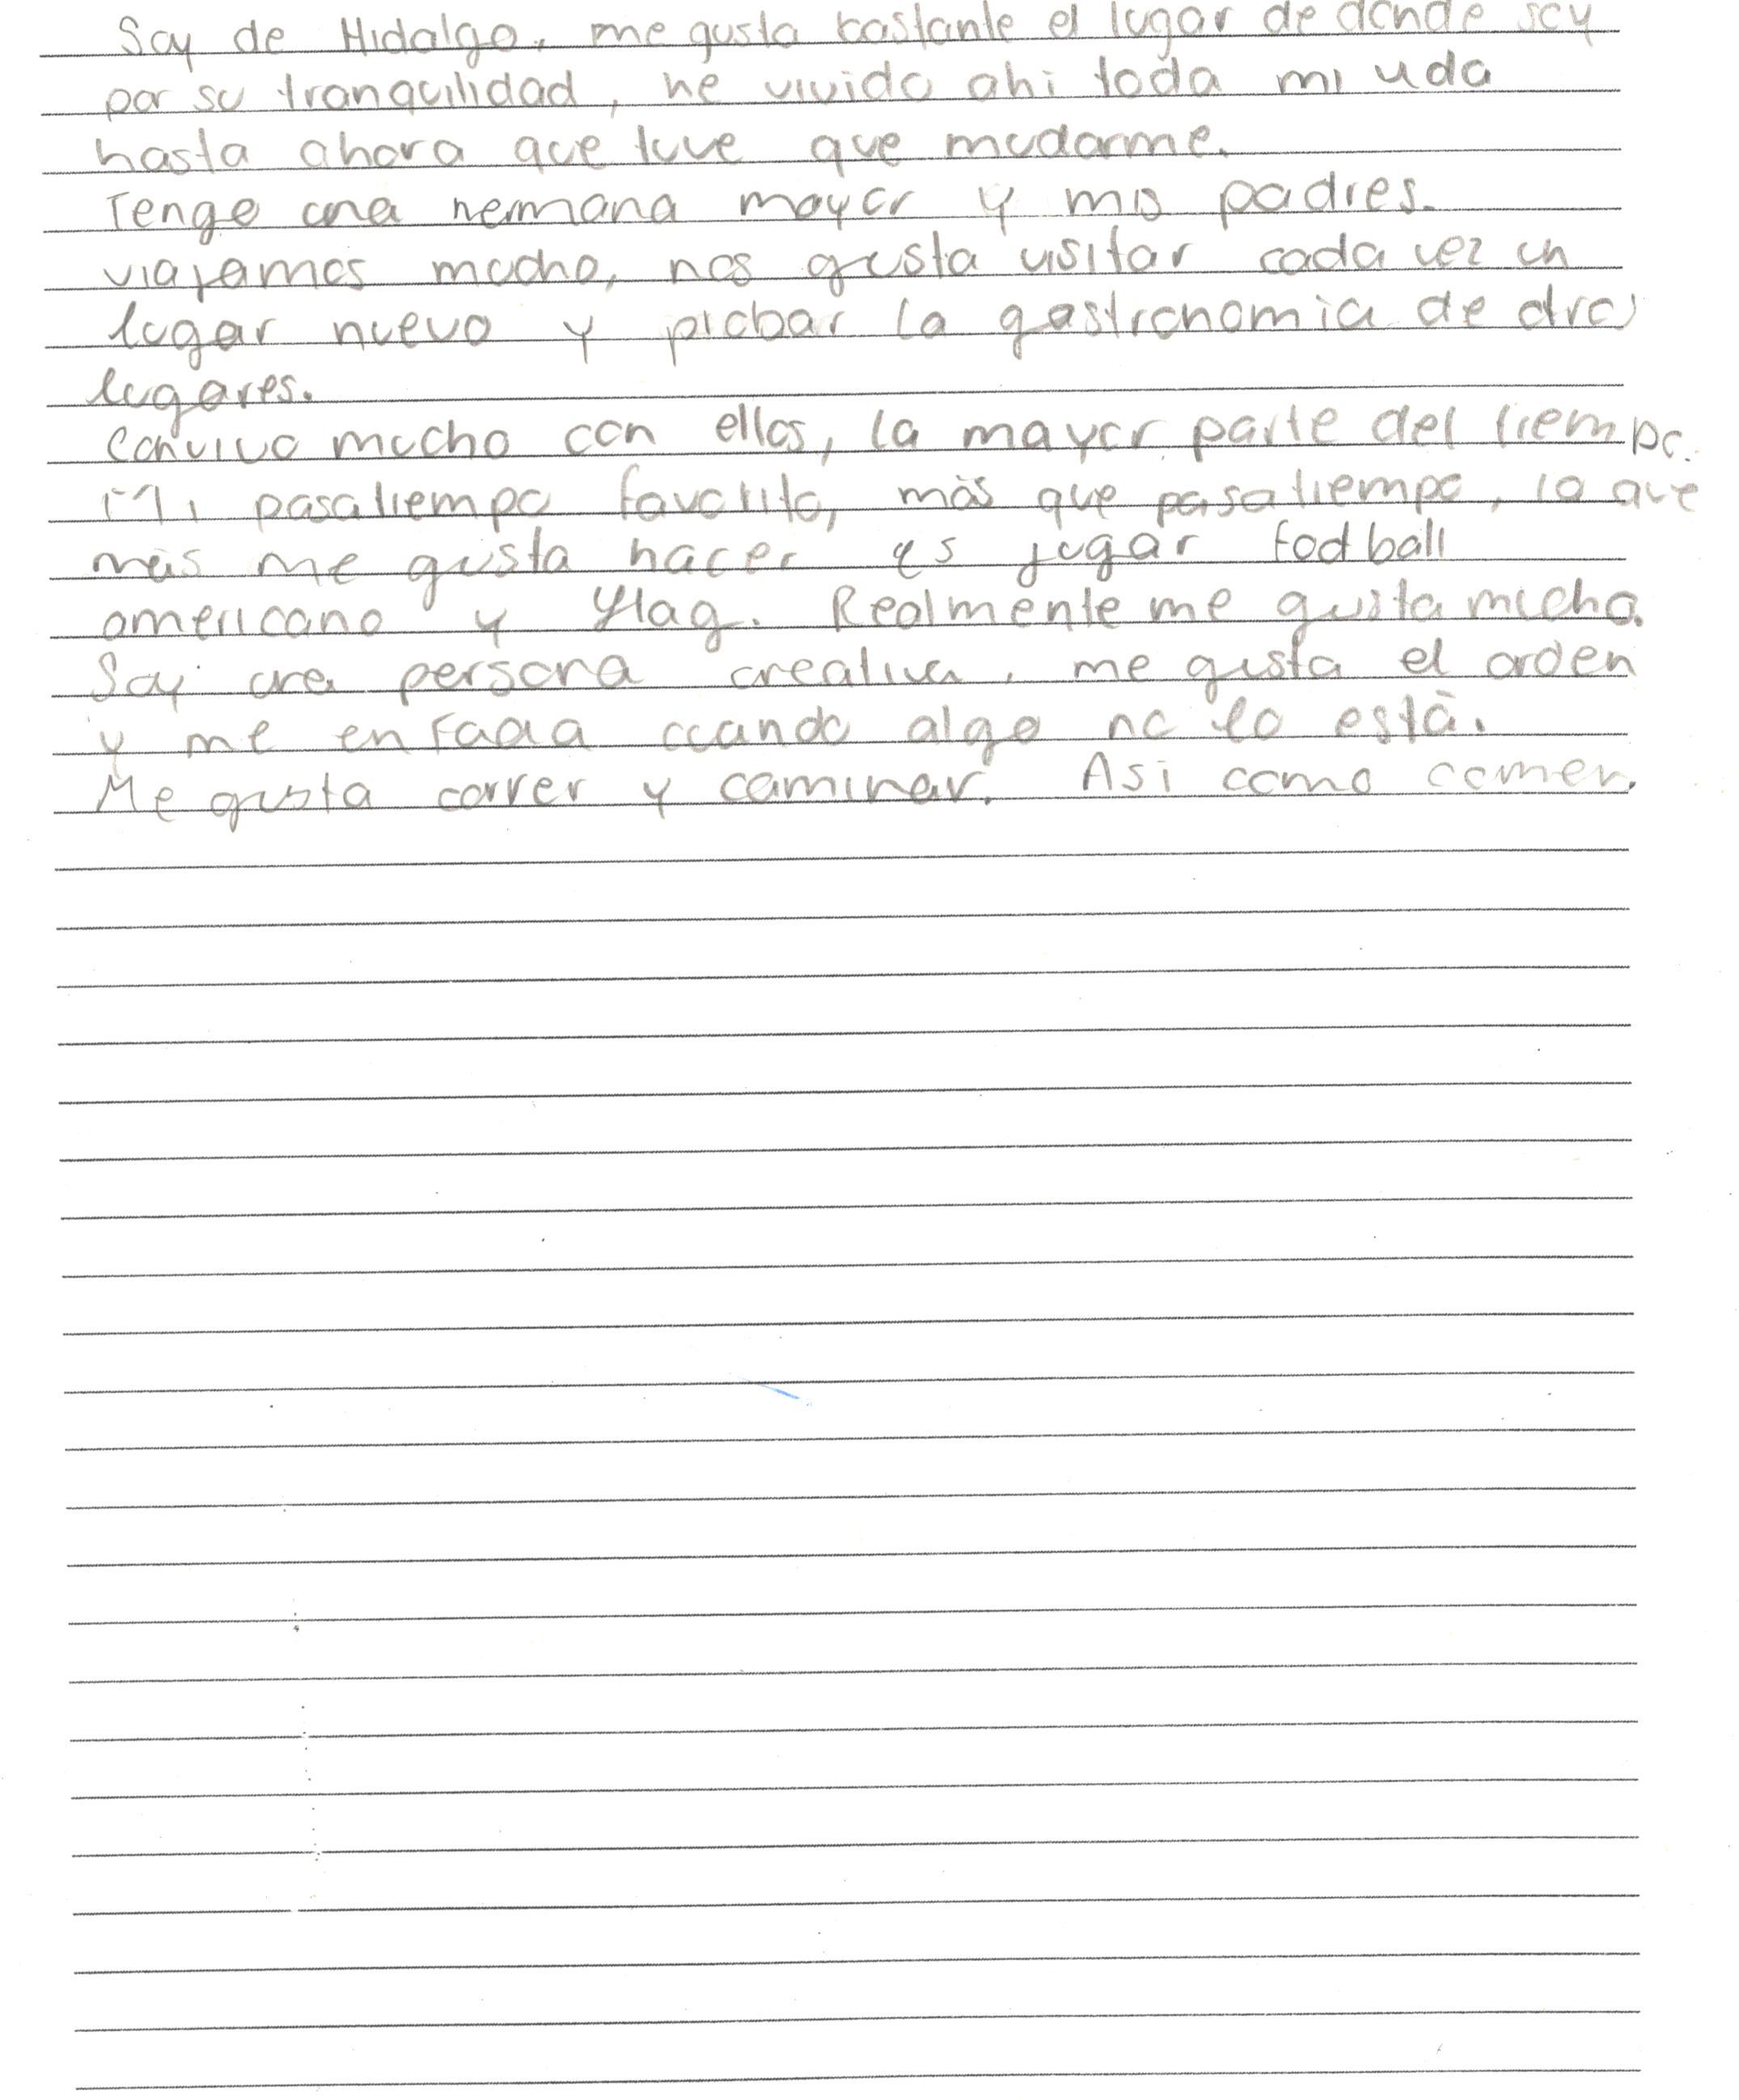 Soy de Hidalgo, me gusta bastante el lugar de donde soy
por su tranquilidad, he vivido ahi toda mi vida
hasta ahora que tuve que mudarme.
Tengo una hermana mayor y mis padres.
viajamos mucho, nos gusta visitar cada vez un
lugar nuevo y probar la gastronomia de otros
lugares.
Convivo mucho con ellos, la mayor parte del tiempo.
Mi pasatiempo favorito, más que pasatiempo, lo que
más me gusta hacer es jugar football
americano y flag. Realmente me gusta mucho.
Soy una persona creativa, me gusta el orden
y me enfada cuando algo no lo está.
Me gusta correr y caminar. Asi como comer.